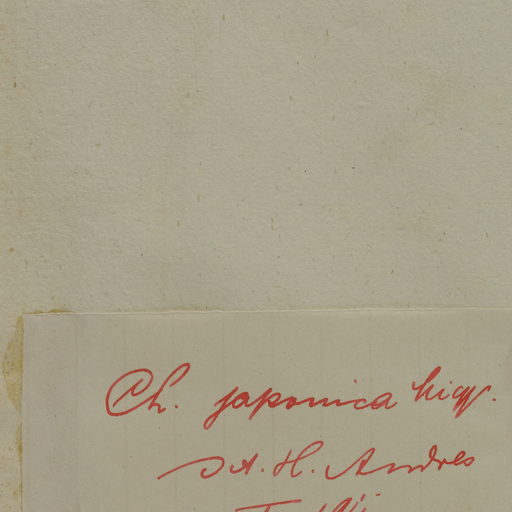 Ch. japonica Miq.
H. Andres